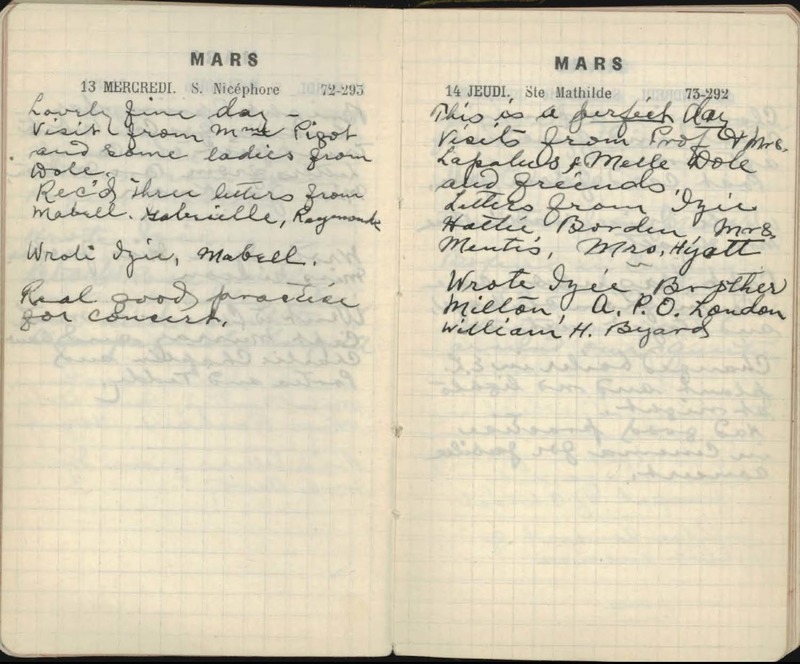 MARS
13 MERCREDI. S. Nicéphore 72-293
Lovely fine day -
Visit from Mme Pigot
and some ladies from
Dole.
Rec'd three letters from
Mabell. Gabrielle, Raymonde
Wrote Izie, Mabell.
Real good practise
for concert.
MARS
14 JEUDI. Ste Mathilde 73-292
This is a perfect day
Visits from Prof & Mrs.
Lapalus, & Melle Dole
and friends.
Letters from Izie
Hattie Borden Mrs
Mentis, Mrs, Hyatt
Wrote Izie Brother
Milton, A. P. O. London
William H. Byard